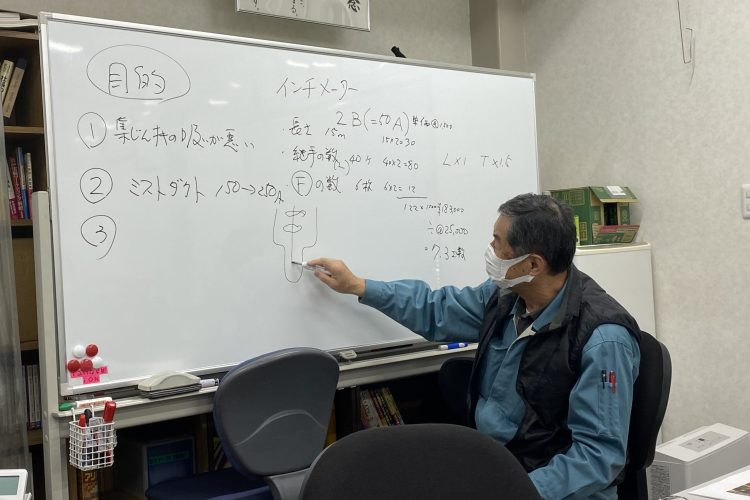 目的
① 集じん機の吸いが悪い
② ミストダクト 150→250
③
インチメーター
2B(=50A) 単価@1500
・長さ 15m 15×2=30
・継手の数 40ヶ 40×2=80
L×1 T×1.5
Ⓕの数 6枚 6×2=12
122×1500=183,000
÷@25,000
=7.32人